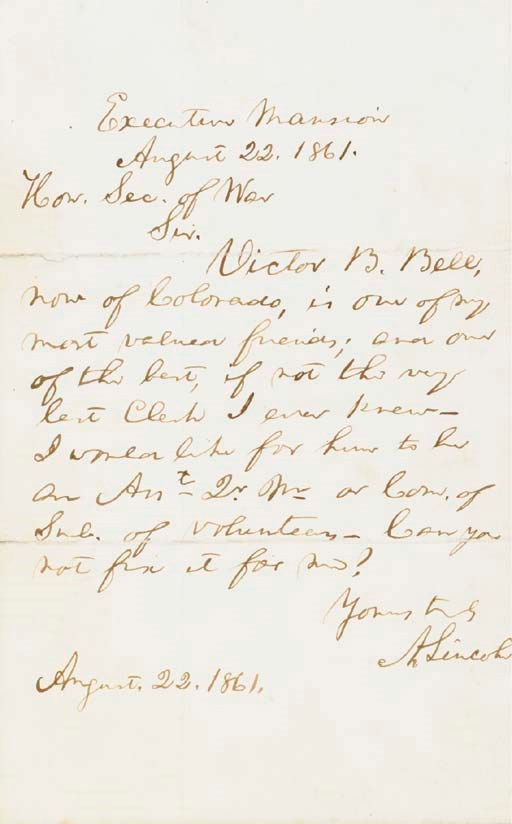 Executive Mansion
August 22. 1861.
Hon. Sec. of War
Sir.
Victor B. Bell,
now of Colorado, is one of my
most valued friends; and one
of the best, if not the very
best Clerk I ever knew—
I would like for him to be
an Asst. Qr. Mr. or Com. of
Sub. of volunteers— Can you
not fix it for me?
Yours truly
A. Lincoln
August. 22. 1861.